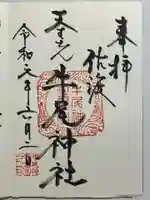 奉拝
佐渡
天王さん
牛尾神社
令和元年六月二日